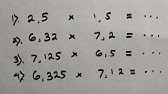 1). 2,5 x 1,5 = ...
2). 6,32 x 7,2 = ...
3). 7,125 x 6,5 = ...
4). 6,325 x 7,12 = ...